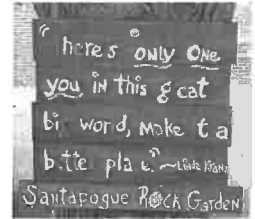 "here's only one
you in this g eat
bi  word, make t a
b tte place." ~
Santapogue Rock Garden